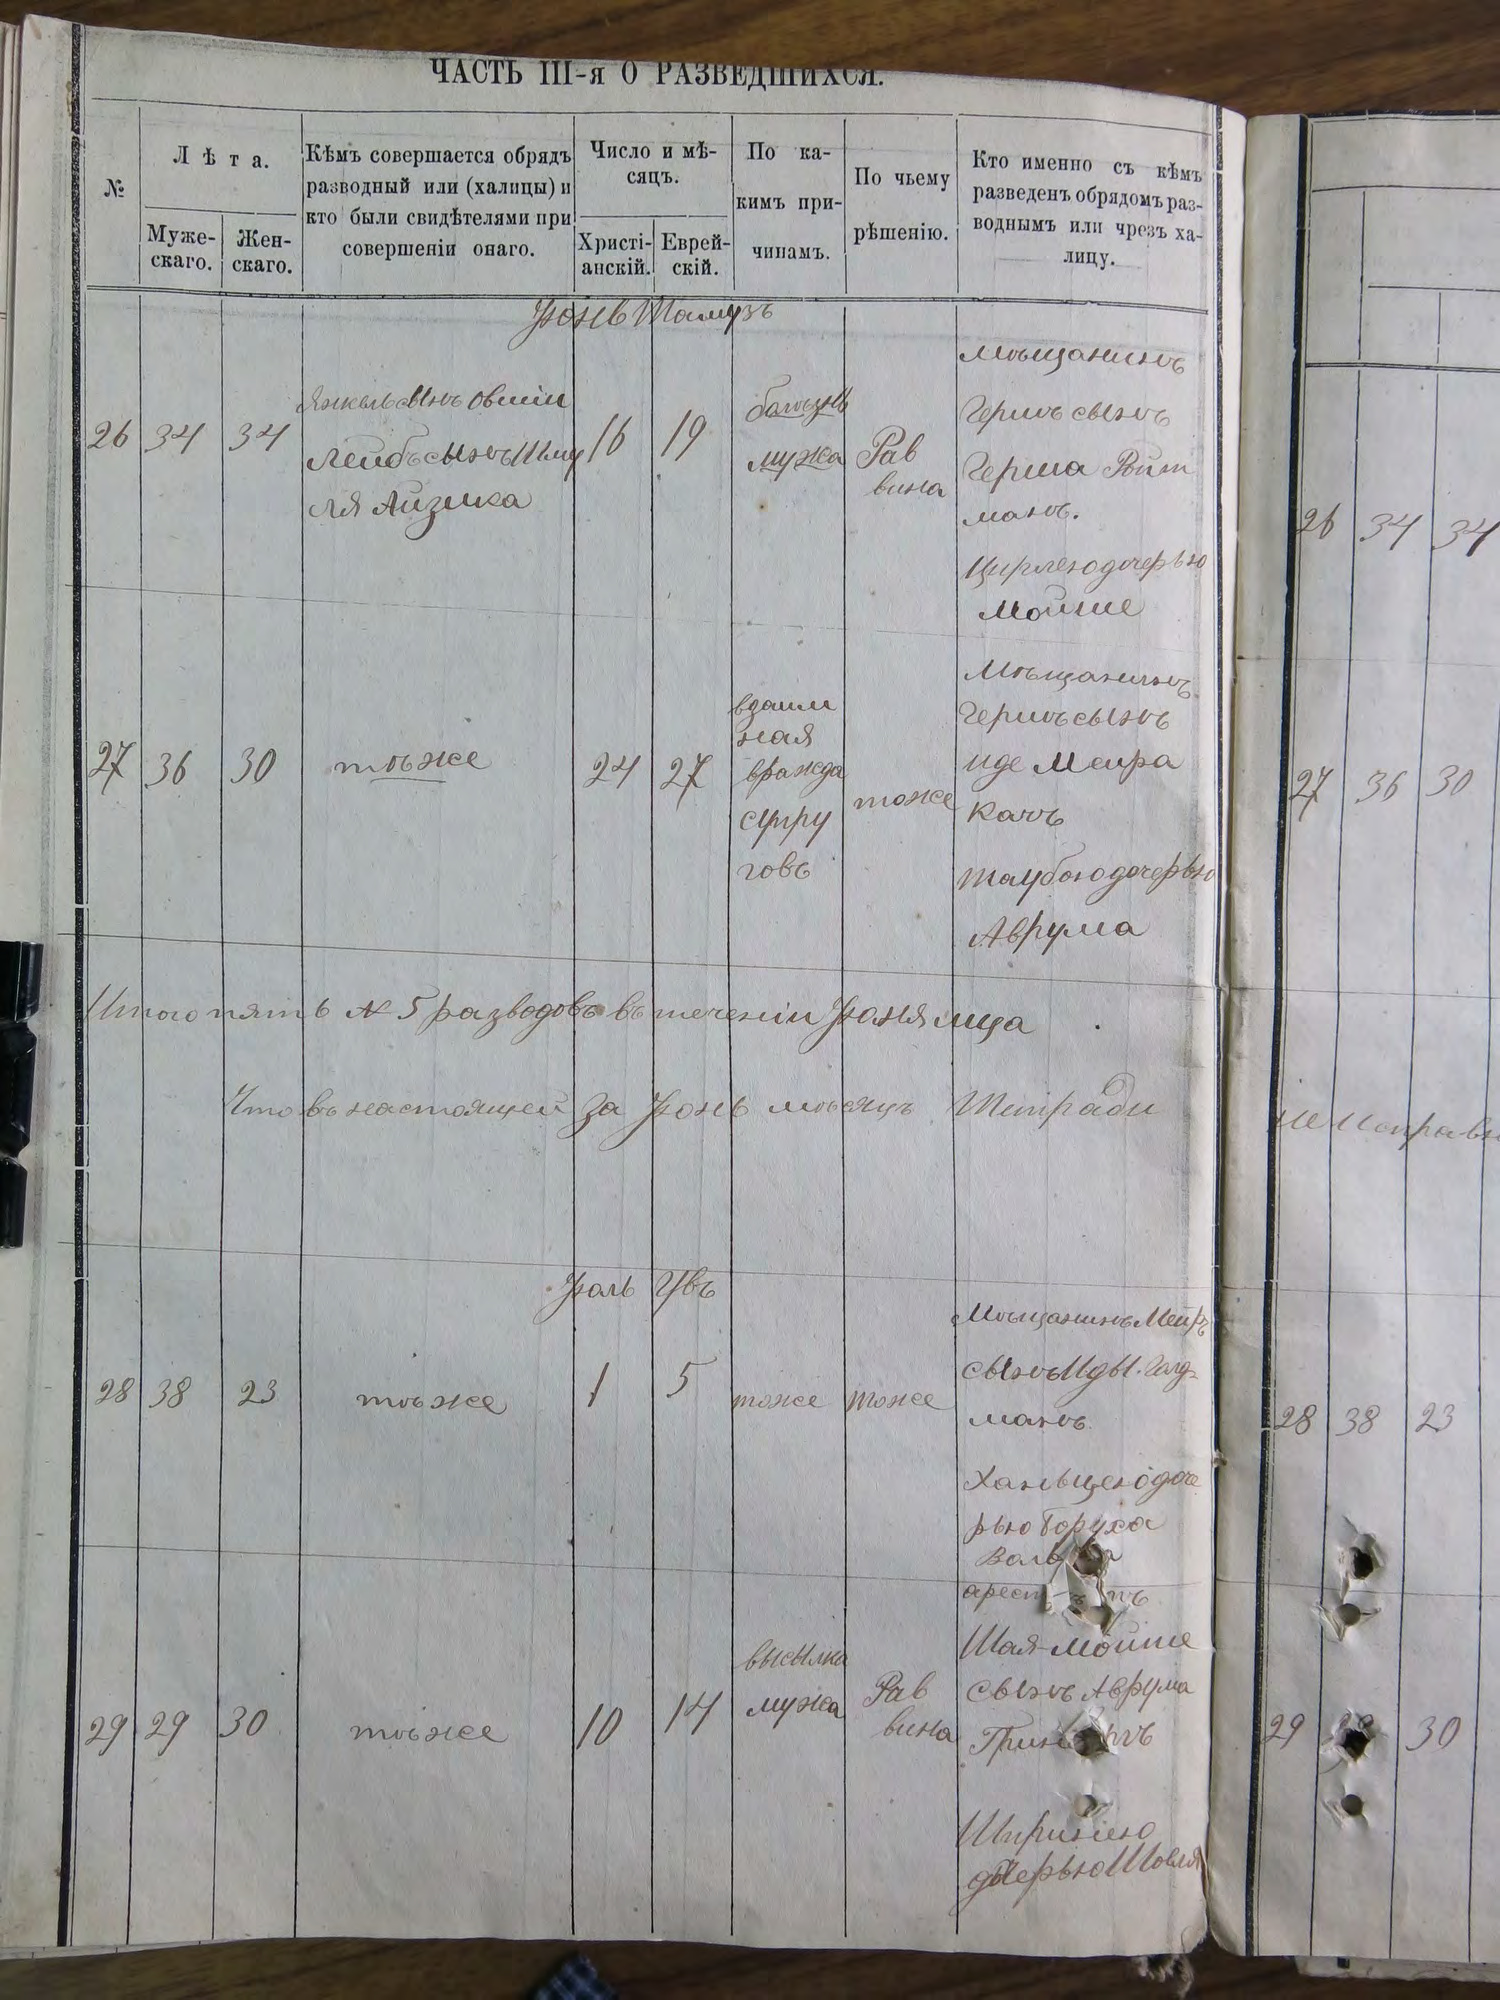 ЧАСТЬ III-я О РАЗВЕДШИХСЯ.
№
Лѣта.
Муже-
скаго.
Жен-
скаго.
Кѣмъ совершается обрядъ
разводный или (халицы) и
кто были свидѣтелями при
совершеніи онаго.
Число и мѣ-
сяцъ.
Христі-
анскій.
Еврей-
скій.
По ка-
кимъ при-
чинамъ.
По чьему
рѣшенію.
Кто именно съ кѣмъ
разведенъ обрядомъ раз-
воднымъ или чрезъ ха-
лицу.
Іюнь Тамузъ
26 34 34
Янкель сынъ Овшіи
Лейбъ сынъ Шму
ля Айзика
16 19
болѣзнь
мужа
Рав
вина
мѣщанинъ
Гершъ сынъ
Герша Ройт
манъ.
Цирлею дочерью
Мойше
27 36 30
тѣ же
24 27
взаим
ная
вражда
супру
говъ
тоже
Мѣщанинъ
Гершъ сынъ
Иде Меира
Качъ
Таубою дочерью
Аврума
Итого пять № 5 разводовъ въ теченіи Іюня мца
Что въ настоящей за Іюнь мѣсяцъ Тетради
Іюль Увъ
28 38 23
тѣ же
1 5
тоже
тоже
Мѣщанинъ Меиръ
сынъ Иды Голд-
манъ
Ханьцею доче
рью Боруха
29 29 30
тѣ же
10 14
высылка
мужа
Рав
вина
Шая-Мойше
сынъ Аврума
Ширинею
дочерью Шовля
26 34 34
27 36 30
не
28 38 23
29 30